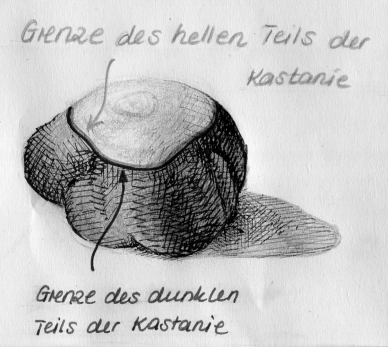 Grenze des hellen Teils der
Kastanie
Grenze des dunklen
Teils der Kastanie